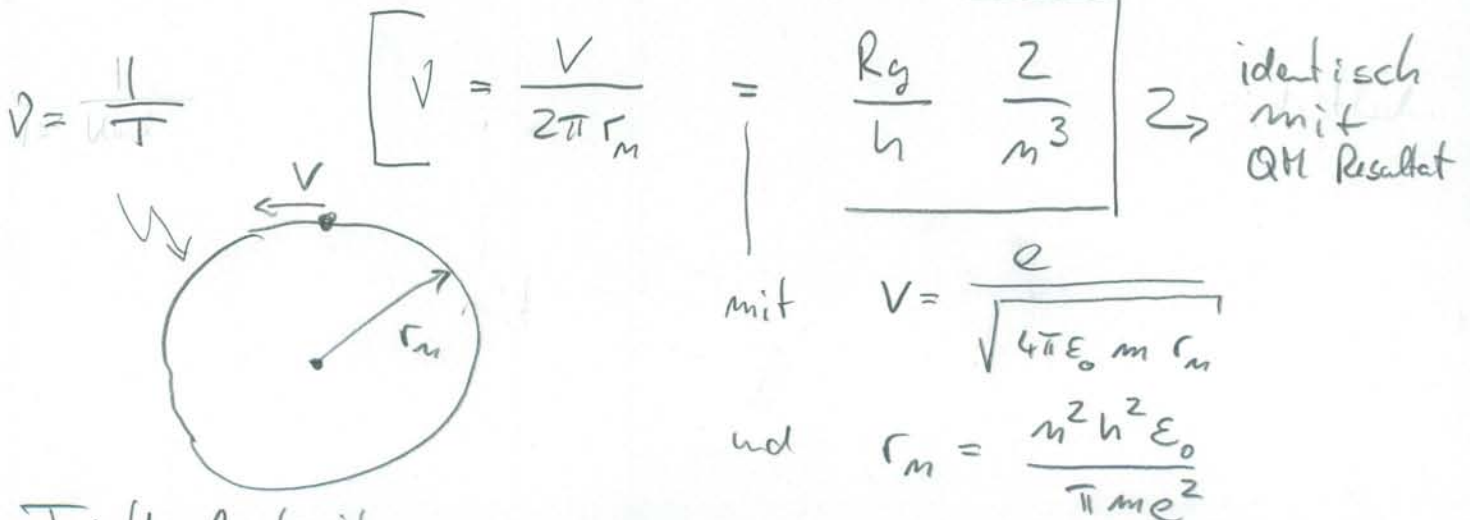 ν = 1/T   [ ν = v/(2π rₙ) = Ry/h 2/n³ ] → identisch
mit
QM Resultat
v
rₙ
mit v = e/√(4πε₀ m rₙ)
und rₙ = n² h² ε₀/(π m e²)